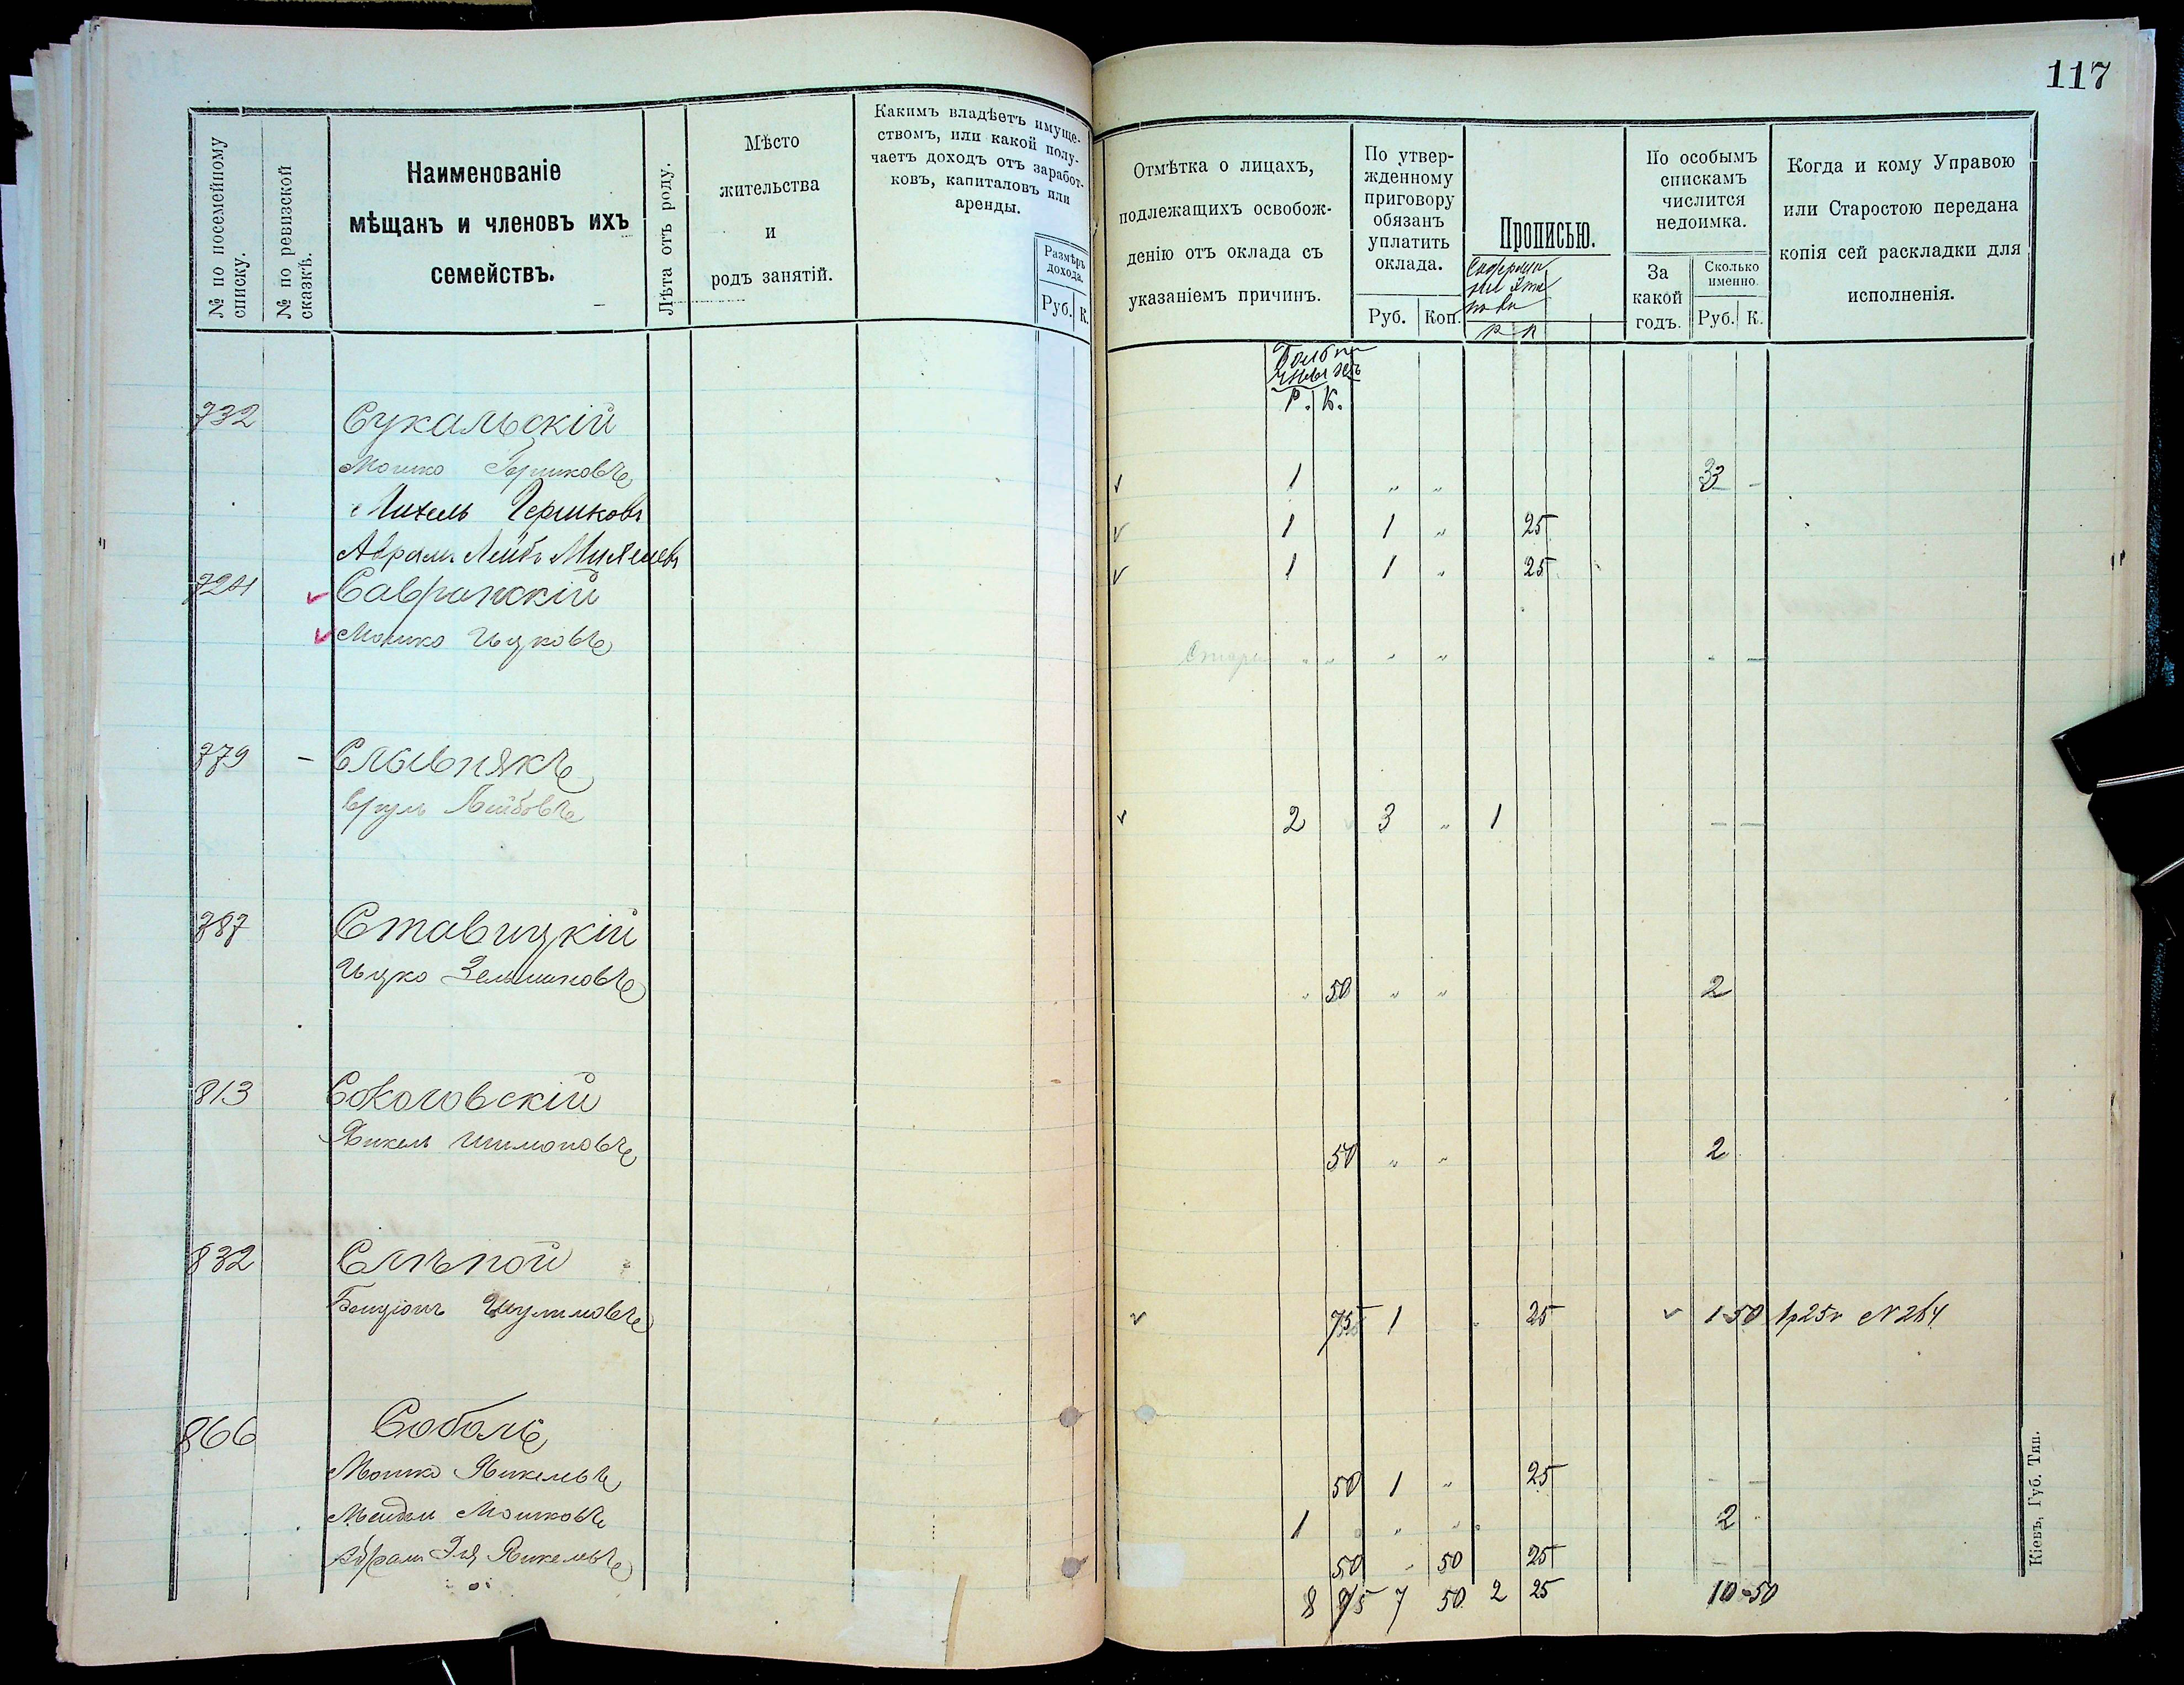 117
№ по посемейному списку.
№ по ревизской сказкѣ.
Наименованіе
мѣщанъ и членовъ ихъ
семействъ.
Лѣта отъ роду.
Мѣсто
жительства
и
родъ занятій.
Какимъ владѣетъ имуще-
ствомъ, или какой полу-
чаетъ доходъ отъ заработ-
ковъ, капиталовъ или
аренды.
Размѣръ
дохода.
Руб. К.
Отмѣтка о лицахъ,
подлежащихъ освобож-
денію отъ оклада съ
указаніемъ причинъ.
По утвер-
жденному
приговору
обязанъ
уплатить
оклада.
Руб. Коп.
Прописью.
Р К
По особымъ
спискамъ
числится
недоимка.
За
какой
годъ.
Сколько
именно.
Руб. К.
Когда и кому Управою
или Старостою передана
копія сей раскладки для
исполненія.
Р. К.
732 Сукальскій
Мошко Гершковъ 1 „ „ 3 -
Михель Гершковъ 1 1 „ 25
Абрамъ Лейбъ Михелевъ 1 1 „ 25
724 Савранскій
Мошко Ицковъ „ „ „ „ - —
779 - Сливнякъ
Сруль Лейбовъ 2 3 „ 1 — —
787 Ставицкій
Ицко Зельмановъ „ 50 „ „ 2
813 Соколовскій
Янкель Шимоновъ 50 „ „ 2
832 Слѣпой
Бенціонъ Шулимовъ 75 1 „ 25 1 50 1р25к N 264
866 Соболь
Мошко Янкелевъ 50 1 „ 25 — —
Мендель Мошковъ 1 „ „ 2
Абрамъ Эля Янкелевъ 50 - 50 25 — —
8 75 7 50 2 25 10-50
Кіевъ, Губ. Тип.